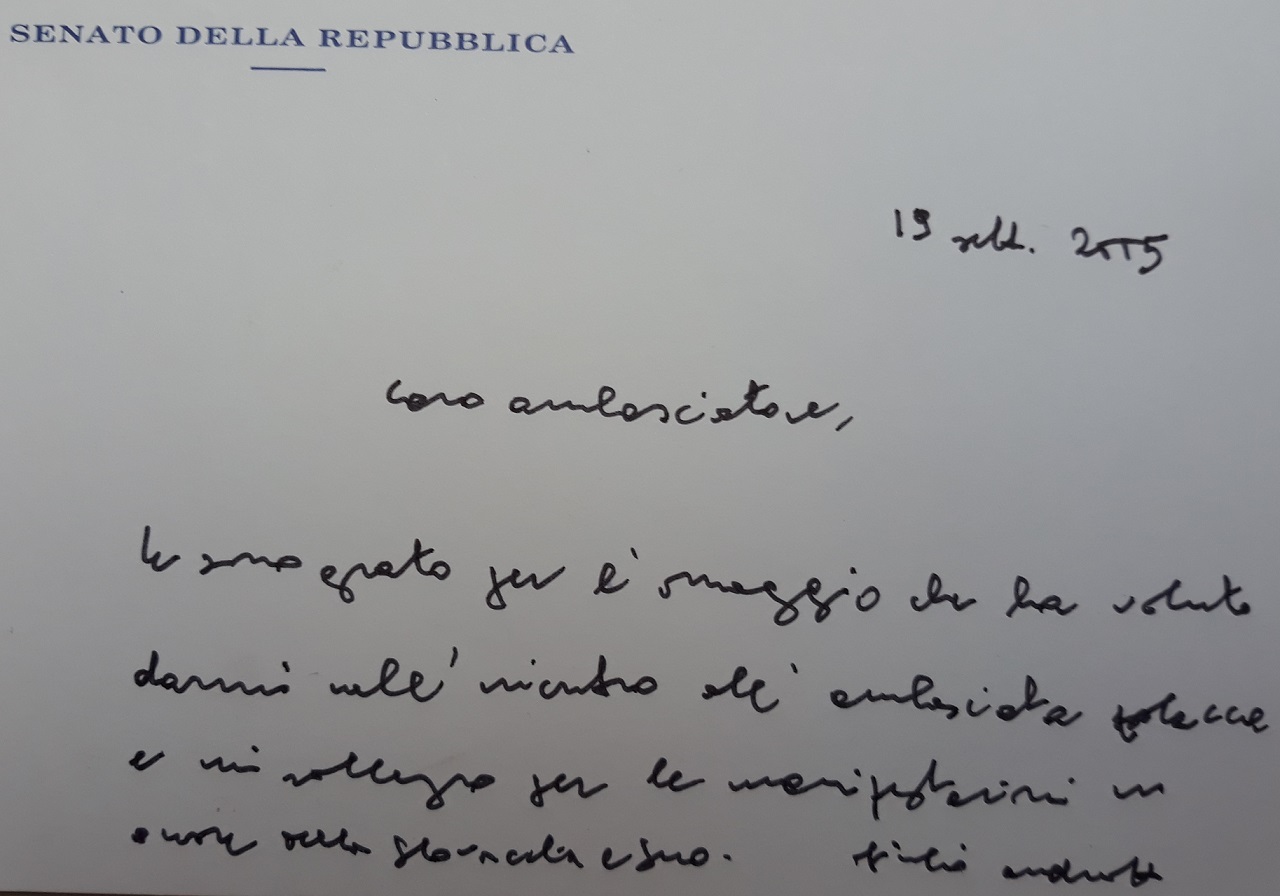 SENATO DELLA REPUBBLICA
19 sett. 2005
Caro ambasciatore,
le sono grato per l'omaggio che ha voluto
darmi nell'incontro all'ambasciata polacca
e mi rallegro per le manifestazioni in
onore della
Giulio Andreotti